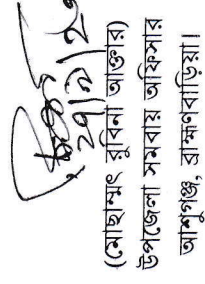 ২৭/৭/২
(মোছাম্মৎ রুবিনা আক্তার)
উপজেলা সমবায় অফিসার
আশুগঞ্জ, ব্রাহ্মণবাড়িয়া।